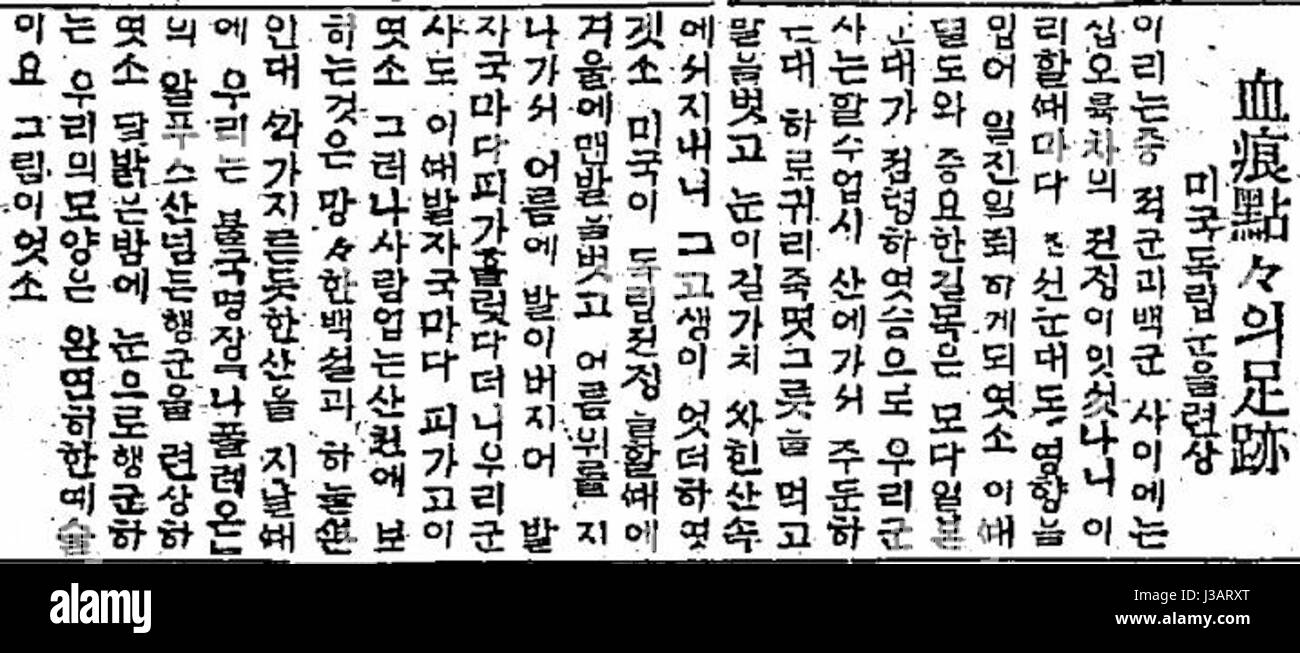 血痕點々의足跡
미국독립군을련상
이리는중 적군과백군 사이에는
십오륙차의 전정이잇섯나니 이
리할때마다 선군대도 영향늘
입어 일진일퇴하게되엿소 이때
텰도와 중요한길목은 모다일본
군대가 점령하엿슴으로 우리군
사는할수업시 산에가서 주둔하
는대 하로귀리죽몃그릇늘 먹고
발늘벗고 눈이길가치 싸힌산속
에서지내니 그고생이 엇더하엿
겟소 미국이 독립전정늘할때에
겨울에맨발늘벗고 어름위를 지
나가서 어름에 발이버지어 발
자국마다피가흘럿다더니우리군
사도 이때발자국마다 피가고이
엿소 그러나사람업는산젼애 보
하는것은 망々한백설과 하늘왼
인대 싸가지른듯한산을 지날때
에 우리는 불국명장『나폴레온』
의 알푸스산넘든행군을 련상하
엿소 달밝는밤에 눈으로행군하
는 우리의모양는 완연히한예술
이요 그림이엇소
alamy stock photo
J3ARXT
www.alamy.com